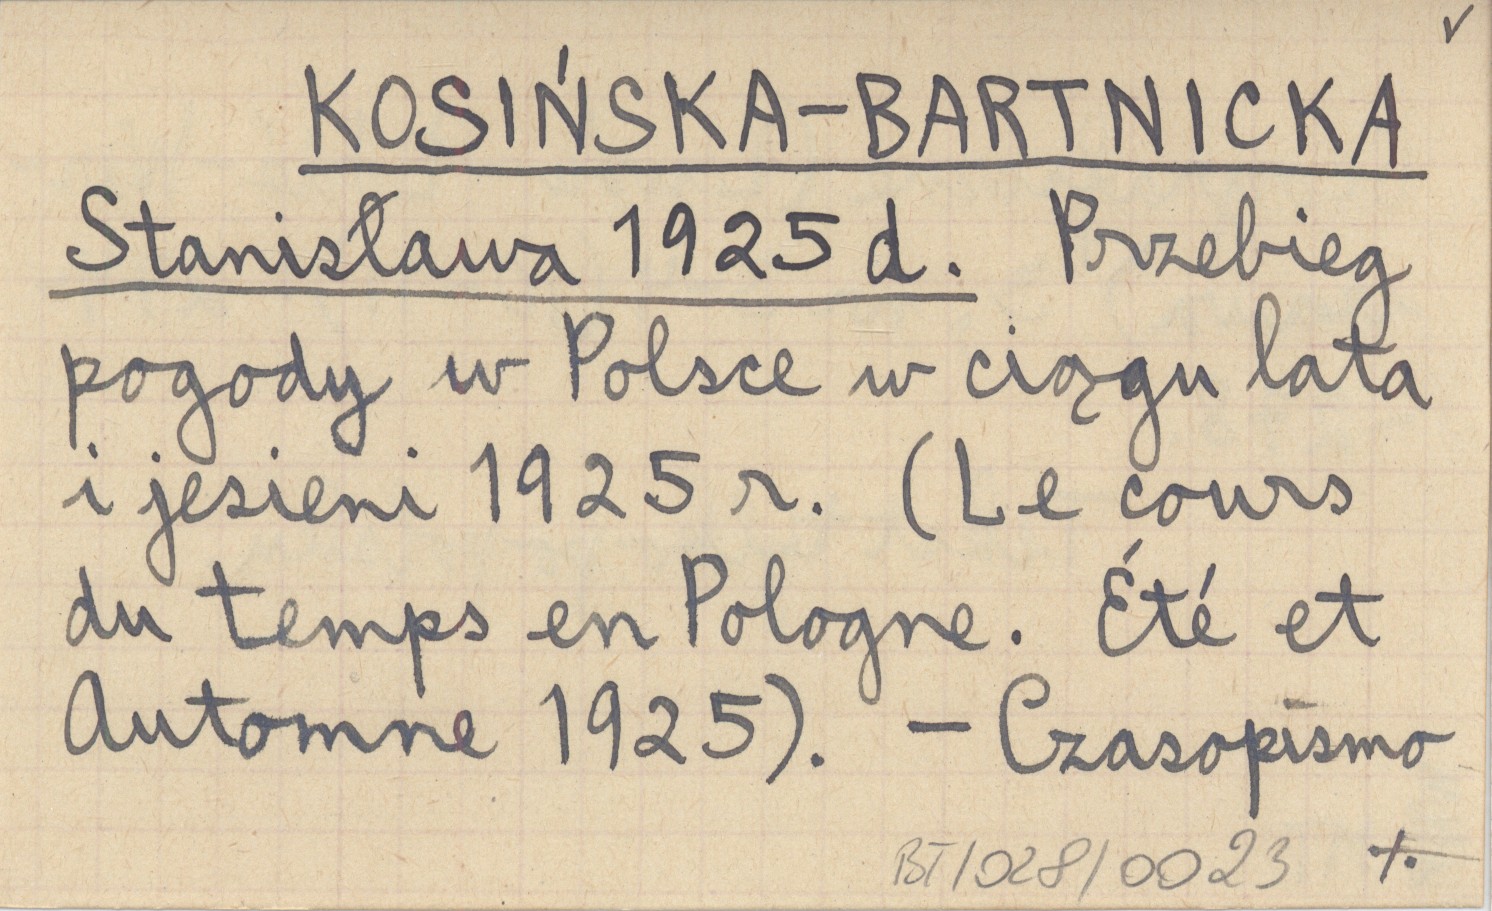 ✓
KOSIŃSKA-BARTNICKA
Stanisława 1925 d. Przebieg
pogody w Polsce w ciągu lata
i jesieni 1925 r. (Le cours
du temps en Pologne. Été et
Automne 1925). - Czasopismo
BT/028/0023 ./.